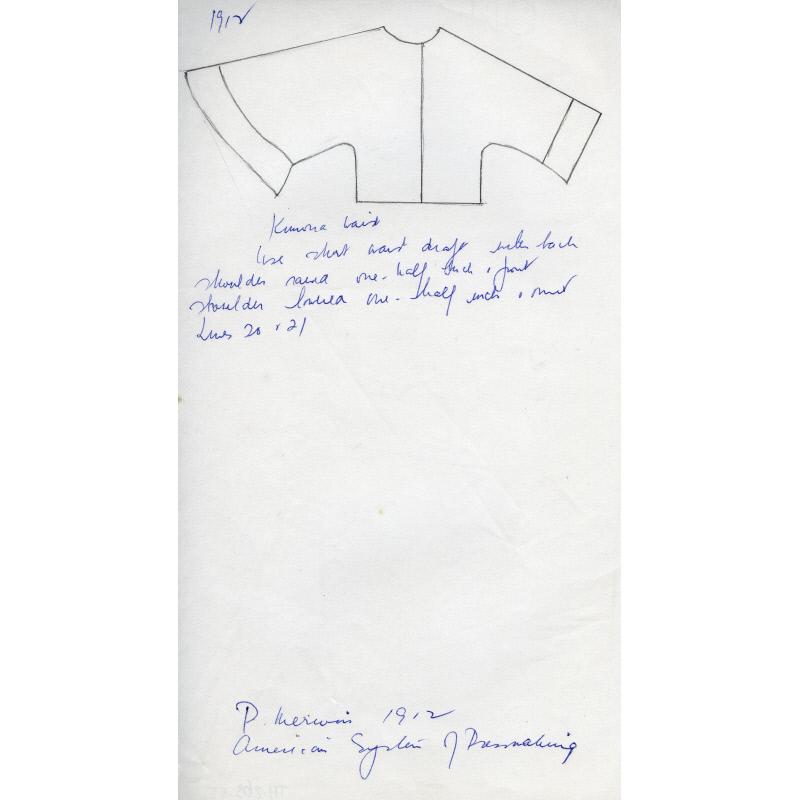 1912
Kimona waist
Use short waist draft with back
shoulder raised one-half inch & front
shoulder lowered one-half inch & omit
Lines 20 & 21
P. Merwin 1912
American System of Dressmaking